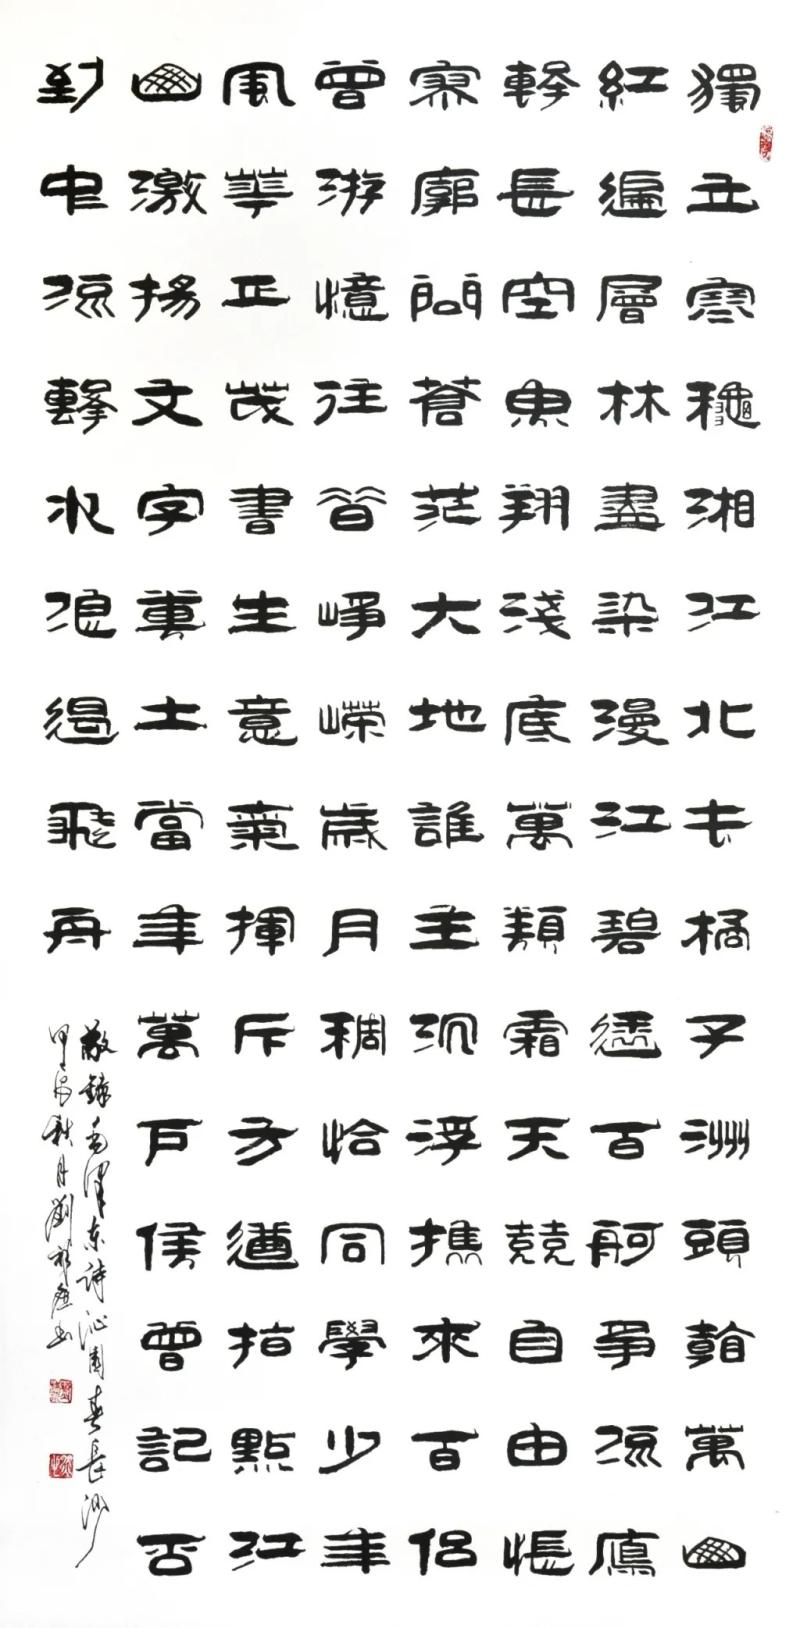 獨立寒龝湘江北去橘子洲頭看萬山
紅遍層林盡染漫江碧透百舸爭流鷹
擊長空魚翔淺底萬類霜天競自由悵
寥廓問蒼茫大地誰主沉浮攜來百侶
曾游憶往昔崢嶸歲月稠恰同學少年
風華正茂書生意氣揮斥方遒指點江
山激揚文字糞土當年萬戶侯曾記否
到中流擊水浪遏飛舟
敬錄毛澤東詩沁園春長沙
甲辰秋月劉書